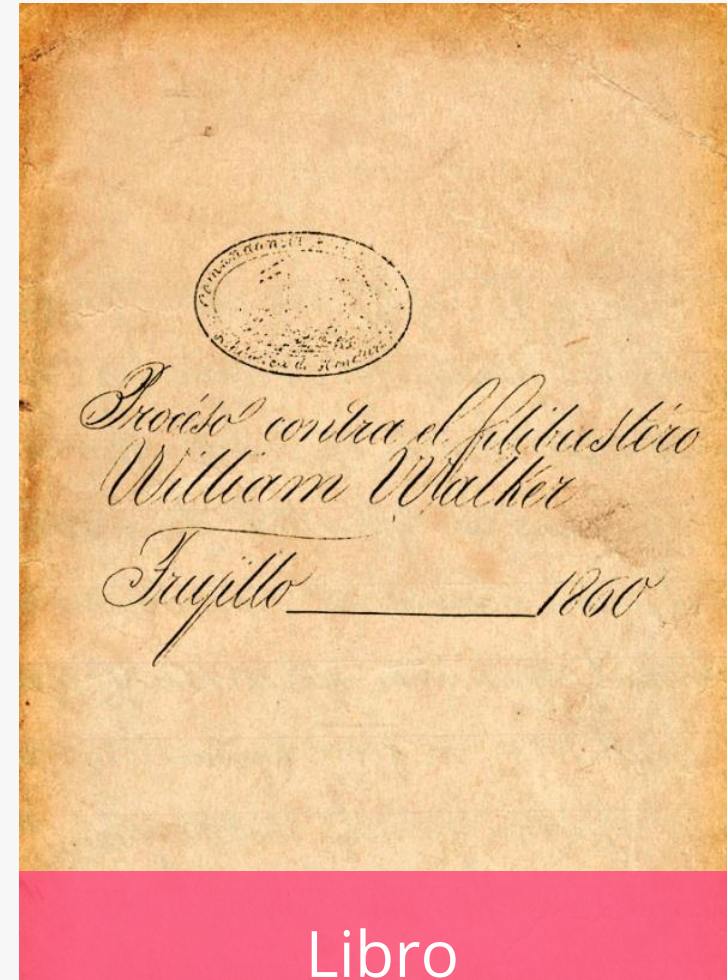 Comandancia
República de Honduras
Procéso contra el filibustéro
William Walker
Trujillo 1860
Libro